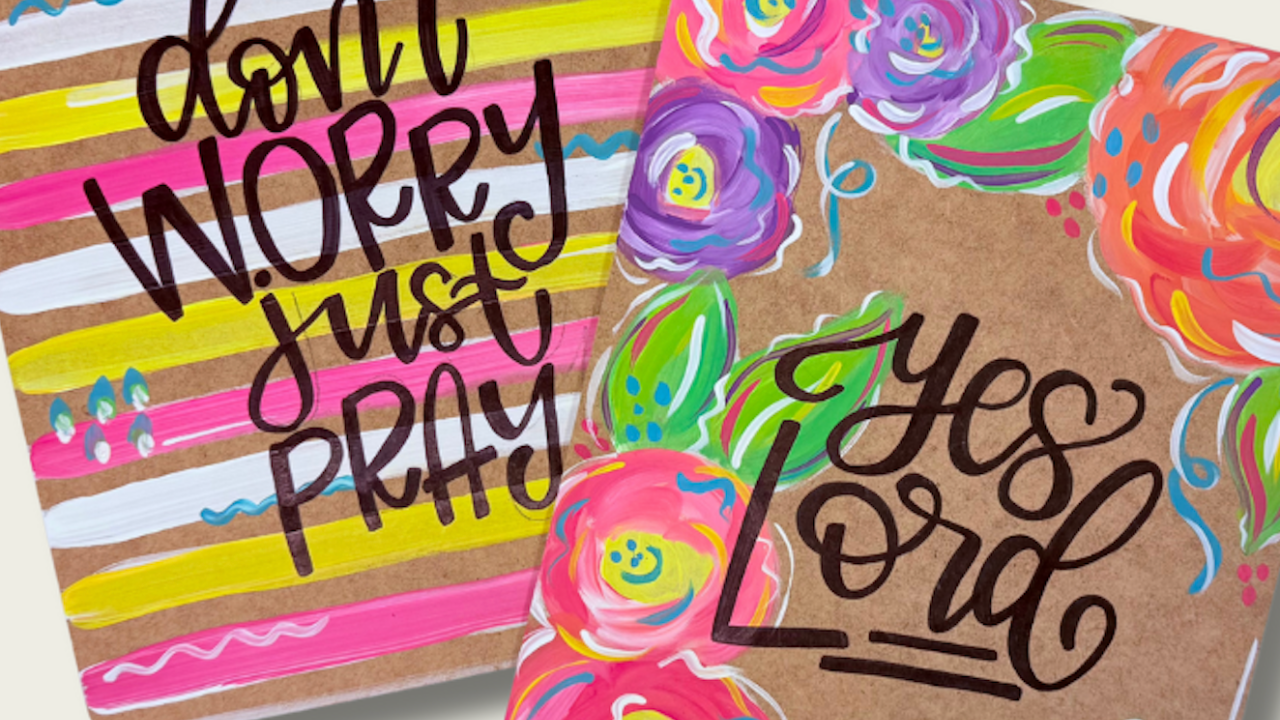 don't
WORRY
just
PRAY
yes
Lord